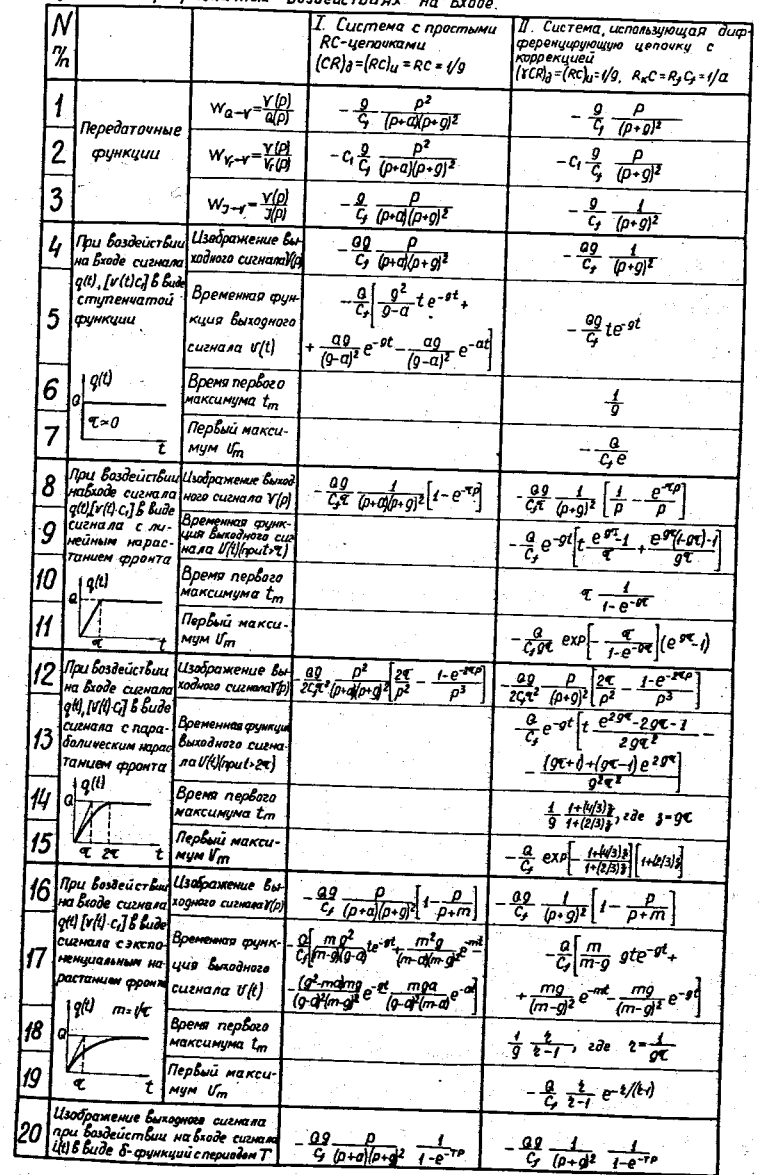 воздействиях на входе.
N п/п
I. Система с простыми RC-цепочками (CR)д=(RC)и = RC = 1/g
II. Система, использующая дифференцирующую цепочку с коррекцией (γCR)д=(RC)и=1/g, RкC = RfCf=1/a
Передаточные функции
1 W Q→V = V(p)/Q(p) | -g/Cf p²/((p+a)(p+g)) | -g/Cf p/(p+g)²
2 W Vг→V = V(p)/Vг(p) | -C1 g/Cf p²/((p+a)(p+g)²) | -C1 g/Cf p/(p+g)²
3 W J→V = V(p)/J(p) | -g/Cf p/((p+a)(p+g)²) | -g/Cf 1/(p+g)²
При воздействии на входе сигнала q(t), [v(t)C1] в виде ступенчатой функции
q(t) Q τ≃0 t
4 Изображение выходного сигнала V(p) | -Qg/Cf p/((p+a)(p+g)²) | -Qg/Cf 1/(p+g)²
5 Временная функция выходного сигнала v(t) | -Q/Cf[g²/(g-a) t e^-gt + | -Qg/Cf te^-gt
+ ag/(g-a)² e^-gt - ag/(g-a)² e^-at]
6 Время первого максимума tm | 1/g
7 Первый максимум Vm | -Q/(Cf e)
При воздействии на входе сигнала q(t),[v(t)·C1] в виде сигнала с линейным нарастанием фронта
q(t) Q τ t
8 Изображение выходного сигнала V(p) | -Qg/(Cfτ) 1/((p+a)(p+g)²) [1-e^-τp] | -Qg/(Cfτ) 1/(p+g)² [1/p - e^-τp/p]
9 Временная функция выходного сигнала V(t)(при t>τ) | -Q/Cf e^-gt [t (e^gτ-1)/τ + (e^gτ(1-gτ)-1)/gτ]
10 Время первого максимума tm | τ 1/(1-e^-gτ)
11 Первый максимум Vm | -Q/(Cfgτ) exp[-τ/(1-e^-gτ)](e^gτ-1)
При воздействии на входе сигнала q(t), [v(t)·C1] в виде сигнала с параболическим нарастанием фронта
q(t) Q τ 2τ t
12 Изображение выходного сигнала V(p) | -Qg/(2Cfτ²) p²/((p+a)(p+g)²) [2τ/p² - (1-e^-2τp)/p³] | -Qg/(2Cfτ²) p/(p+g)² [2τ/p² - (1-e^-2τp)/p³]
13 Временная функция выходного сигнала V(t)(при t>2τ) | -Q/Cf e^-gt [t (e^2gτ-2gτ-1)/(2gτ²) -
- ((gτ+1)+(gτ-1)e^2gτ)/(g²τ²)]
14 Время первого максимума tm | 1/g (1+(4/3)z)/(1+(2/3)z), где z=gτ
15 Первый максимум Vm | -Q/Cf exp[-(1+(4/3)z)/(1+(2/3)z)] [1+(2/3)z]
При воздействии на входе сигнала q(t) [v(t)·C1] в виде сигнала с экспоненциальным нарастанием фронта
q(t) m=1/τ Q τ t
16 Изображение выходного сигнала V(p) | -Qg/Cf p/((p+a)(p+g)²) [1-p/(p+m)] | -Qg/Cf 1/(p+g)² [1-p/(p+m)]
17 Временная функция выходного сигнала v(t) | -Q/Cf[mg²/((m-g)(g-a)) te^-gt + m²g/((m-a)(m-g)²) e^-mt - | -Q/Cf[m/(m-g) gte^-gt +
-(g²-ma)mg/((g-a)²(m-g)²) e^-gt - mga/((g-a)²(m-a)) e^-at] | + mg/(m-g)² e^-mt - mg/(m-g)² e^-gt]
18 Время первого максимума tm | 1/g r/(r-1), где r=1/gτ
19 Первый максимум Vm | -Q/Cf r/(r-1) e^-r/(r-1)
20 Изображение выходного сигнала при воздействии на входе сигнала i(t) в виде δ-функций с периодом T | -Qg/Cf p/((p+a)(p+g)²) 1/(1-e^-Tp) | -Qg/Cf 1/(p+g)² 1/(1-e^-Tp)